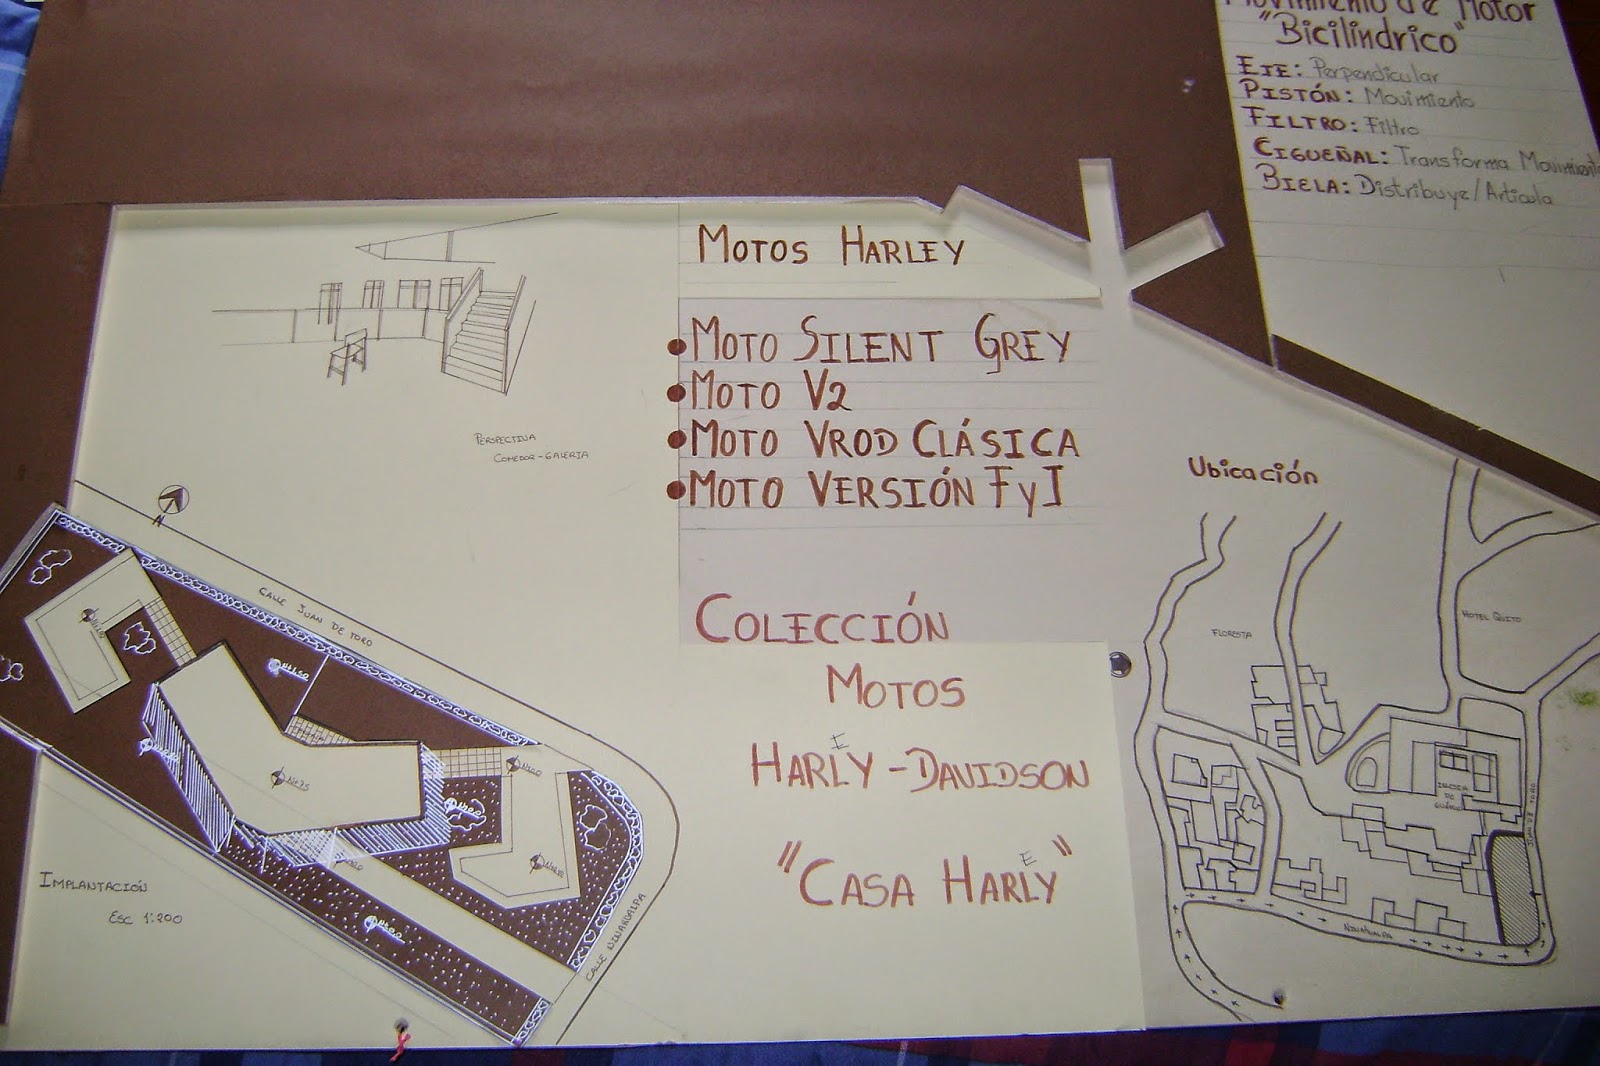 Movimiento de Motor
"Bicilíndrico"
EJE: Perpendicular
PISTÓN: Movimiento
FILTRO: Filtro
CIGUEÑAL: Transforma Movimiento
BIELA: Distribuye/Articula
MOTOS HARLEY
• MOTO SILENT GREY
• MOTO V2
• MOTO VROD CLÁSICA
• MOTO VERSIÓN F y I
PERSPECTIVA
COMEDOR-GALERIA
Ubicación
N
CALLE JUAN DE TORO
COLECCIÓN
MOTOS
HARLEY-DAVIDSON
"CASA HARLEY"
FLORESTA
HOTEL QUITO
IGLESIA
DE
GUÁPULO
JUAN DE TORO
NINAHUALPA
IMPLANTACIÓN
ESC 1:200
CALLE NINAHUALPA